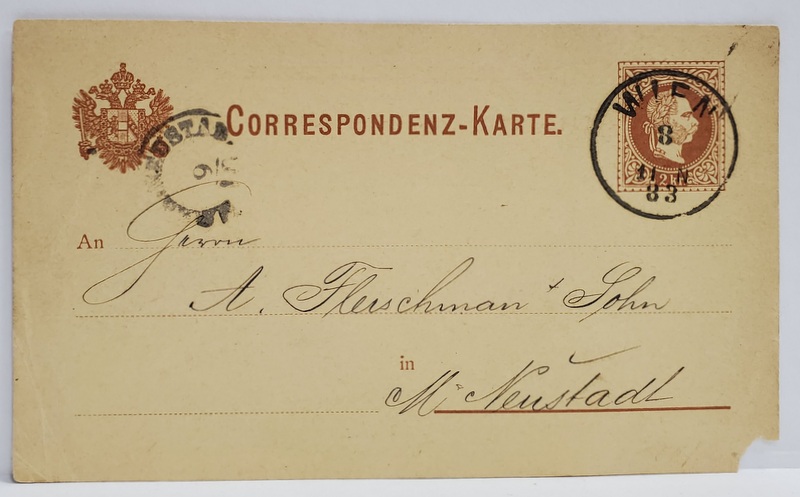 CORRESPONDENZ-KARTE.
WIEN
8
11 N
83
9
An Herrn
A. Fleischman + Sohn
in
M. Neustadt